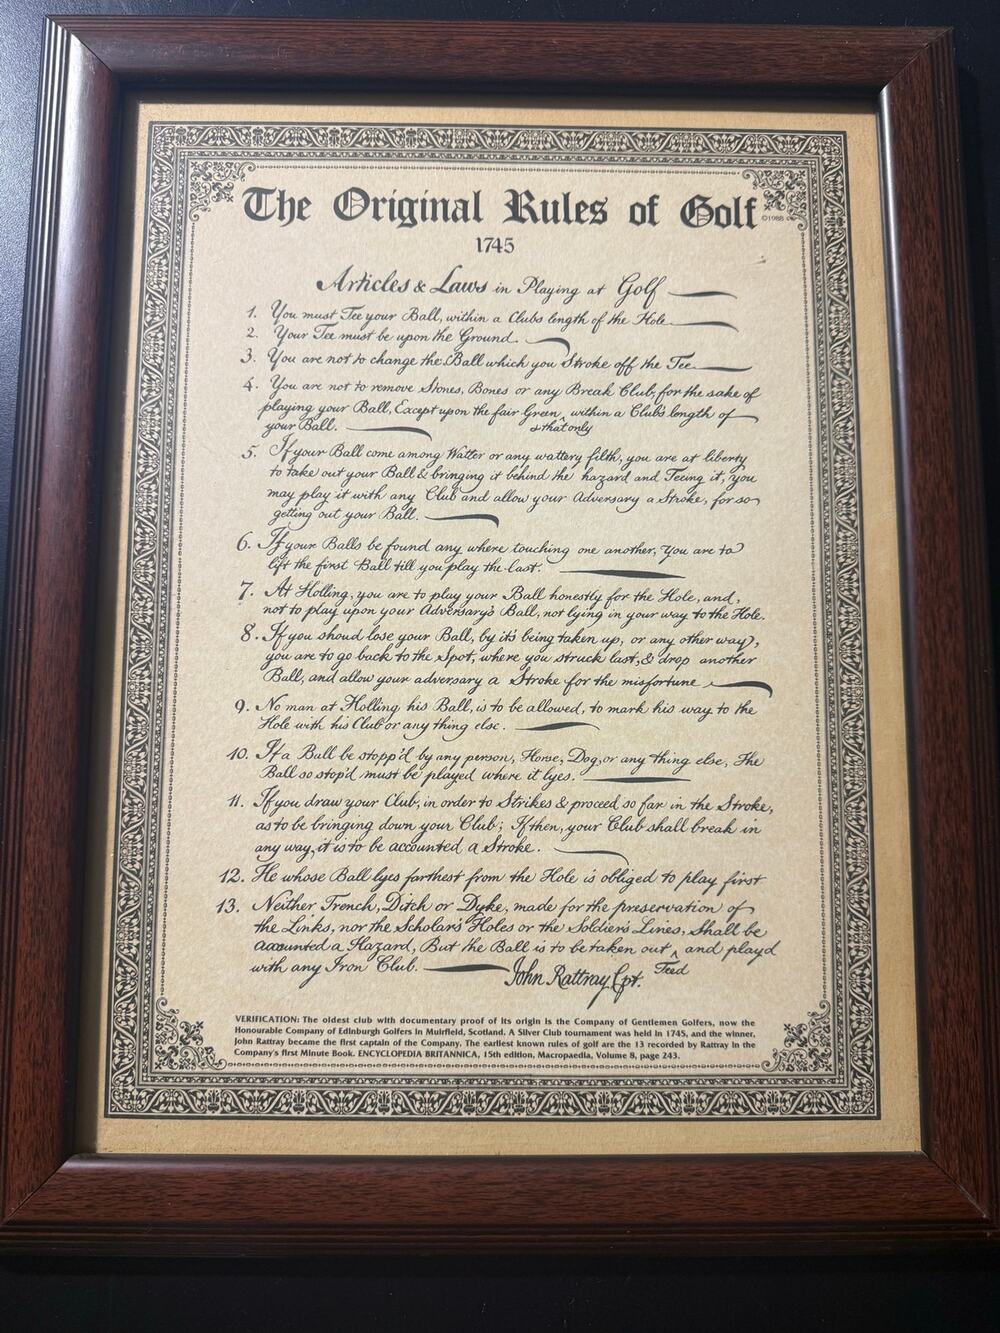 The Original Rules of Golf
©1988
1745
Articles & Laws in Playing at Golf
1. You must Tee your Ball, within a Clubs length of the Hole
2. Your Tee must be upon the Ground.
3. You are not to change the Ball which you Stroke off the Tee.
4. You are not to remove Stones, Bones or any Break Club, for the sake of
playing your Ball, Except upon the fair Green, within a Club's length of
your Ball. & that only
5. If your Ball come among Watter or any wattery filth, you are at liberty
to take out your Ball & bringing it behind the hazard and Teeing it, you
may play it with any Club and allow your Adversary a Stroke, for so
getting out your Ball.
6. If your Balls be found any where touching one another, You are to
lift the first Ball till you play the last.
7. At Holling, you are to play your Ball honestly for the Hole, and,
not to play upon your Adversary's Ball, not lying in your way to the Hole.
8. If you shoud lose your Ball, by it's being taken up, or any other way,
you are to go back to the Spot, where you struck last, & drop another
Ball, and allow your adversary a Stroke for the misfortune
9. No man at Holling his Ball, is to be allowed, to mark his way to the
Hole with his Club or any thing else.
10. If a Ball be stopp'd by any person, Horse, Dog, or any thing else, The
Ball so stop'd must be played where it lyes.
11. If you draw your Club, in order to Strikes & proceed so far in the Stroke,
as to be bringing down your Club; If then, your Club shall break in
any way, it is to be accounted a Stroke.
12. He whose Ball lyes farthest from the Hole is obliged to play first
13. Neither Trench, Ditch or Dyke, made for the preservation of
the Links, nor the Scholar's Holes or the Soldier's Lines, Shall be
accounted a Hazard, But the Ball is to be taken out ^ and play'd
with any Iron Club. John Rattray Cpt. Teed
VERIFICATION: The oldest club with documentary proof of its origin is the Company of Gentlemen Golfers, now the
Honourable Company of Edinburgh Golfers in Muirfield, Scotland. A Silver Club tournament was held in 1745, and the winner,
John Rattray became the first captain of the Company. The earliest known rules of golf are the 13 recorded by Rattray in the
Company's first Minute Book. ENCYCLOPEDIA BRITANNICA, 15th edition, Macropaedia, Volume 8, page 243.